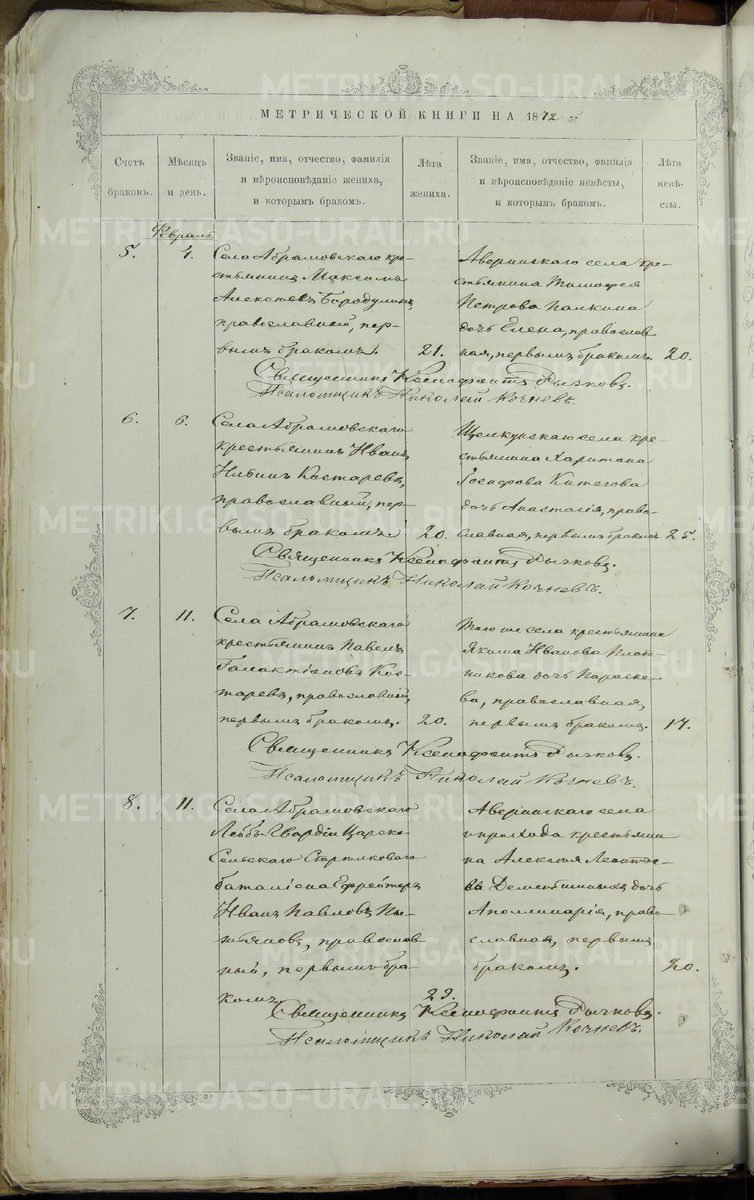 МЕТРИЧЕСКОЙ КНИГИ НА 1872
Счетъ браковъ.
Мѣсяцъ и день.
Званіе, имя, отчество, фамилія и вѣроисповѣданіе жениха, и которымъ бракомъ.
Лѣта жениха.
Званіе, имя, отчество, фамилія и вѣроисповѣданіе невѣсты, и которымъ бракомъ.
Лѣта невѣсты.
5.
4.
Села Абрамовскаго кре-
стьянинъ Максимъ
Алексѣевъ Бородулинъ,
православный, пер-
вымъ бракомъ.
21.
Аверинскаго села кре-
стьянина Тимофея
Петрова Палкина
дочь Елена, православ
ная, первымъ бракомъ.
20.
Священникъ Ксенофонтъ Рычковъ.
Псаломщикъ Николай Кочневъ.
6.
6.
Села Абрамовскаго
крестьянинъ Иванъ
Ильинъ Костаревъ,
православный, пер-
вымъ бракомъ.
20.
Щелкунскаго села кре-
стьянина Харитона
Іосифова
дочь Анастасія, право-
славная, первымъ бракомъ.
25.
Священникъ Ксенофонтъ Рычковъ.
Псаломщикъ Николай Кочневъ.
7.
11.
Села Абрамовскаго
крестьянинъ Павелъ
Галактіоновъ Кос-
таревъ, православный,
первымъ бракомъ.
20.
Того же села крестьянина
Якима Иванова Плот-
никова дочь Параске-
ва, православная,
первымъ бракомъ.
17.
Священникъ Ксенофонтъ Рычковъ.
Псаломщикъ Николай Кочневъ.
8.
11.
Села Абрамовскаго
Лейбъ Гвардіи Царско-
Сельскаго Стрѣлковаго
баталіона Ефрейторъ
Иванъ Павловъ
православ-
ный, первымъ бра-
комъ
29.
Аверинскаго села
и прихода крестьяни
на Алексѣя Леонтье-
ва дочь
Аполлинарія, право-
славная, первымъ
бракомъ.
20.
Священникъ Ксенофонтъ Рычковъ.
Псаломщикъ Николай Кочневъ.
METRIKI.GASO-URAL.RU